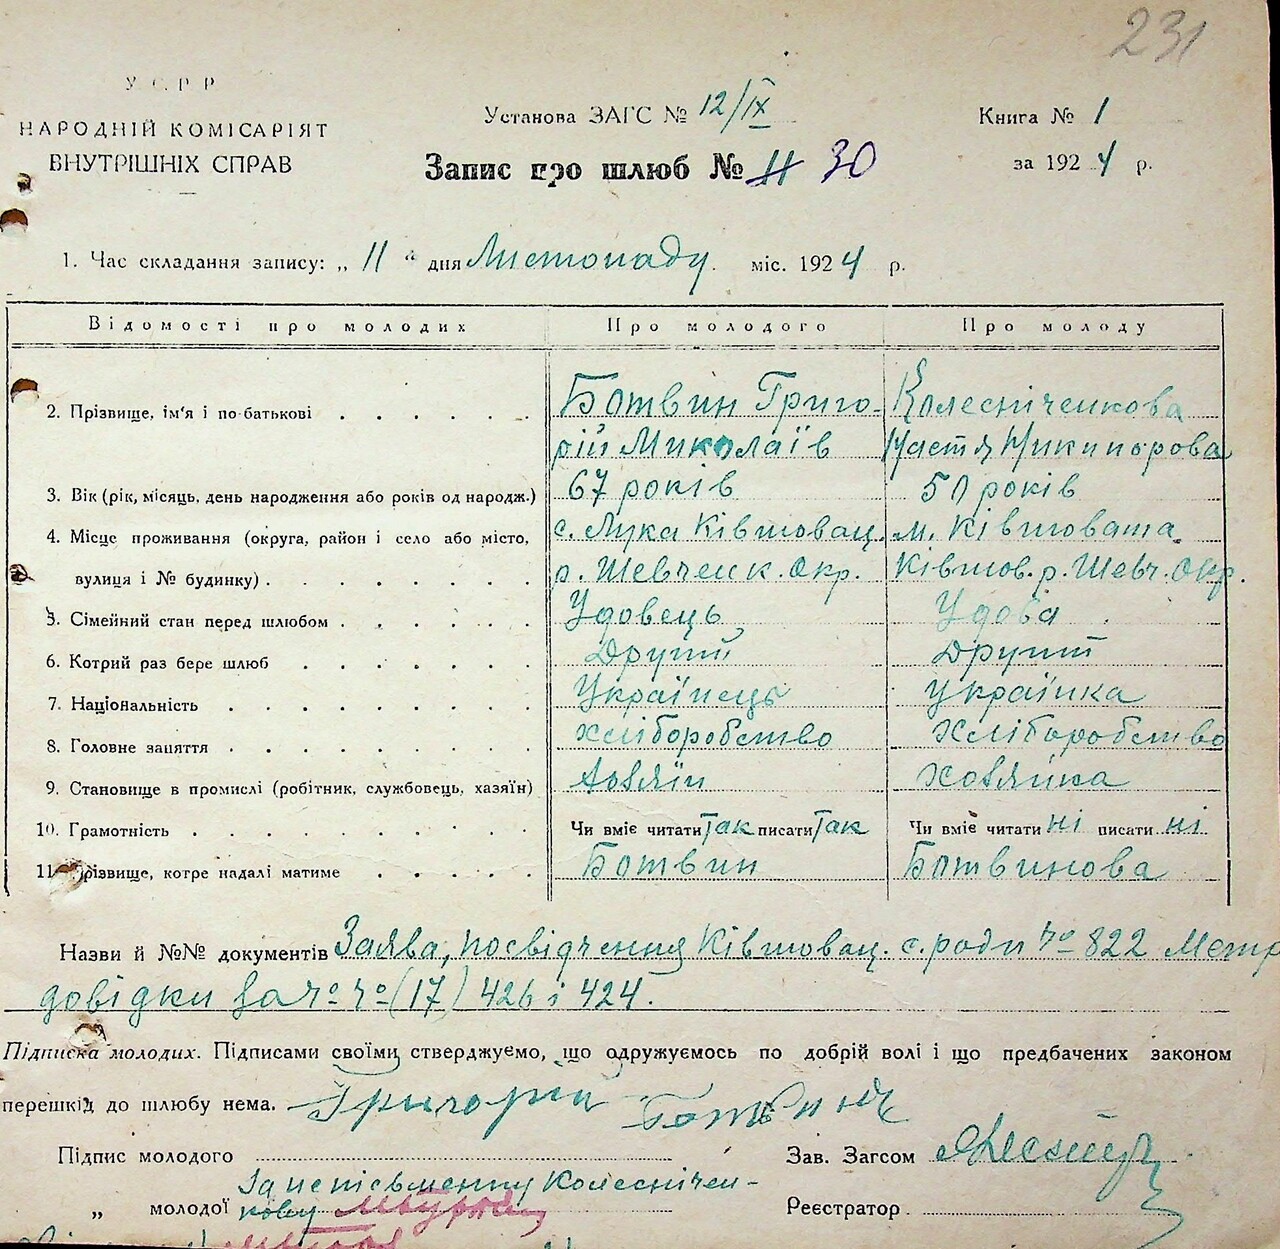 231
У С Р Р
НАРОДНІЙ КОМІСАРІЯТ
ВНУТРІШНІХ СПРАВ
Установа ЗАГС № 12/IX
Книга № 1
Запис про шлюб № 11 30
за 1924 р.
1. Час складання запису: „ 11 “ дня Листопаду. міс. 1924 р.
Відомості про молодих Про молодого Про молоду
2. Прізвище, ім'я і по-батькові Ботвин Григо- Колесніченкова
рій Миколаїв Настя Никипорова
3. Вік (рік, місяць, день народження або років од народж.) 67 років 50 років
4. Місце проживання (округа, район і село або місто, с. Лука Ківшовац. м. Ківшовата
вулиця і № будинку) р. Шевченк. Окр. Ківшов. р. Шевч. Окр.
5. Сімейний стан перед шлюбом Удовець Удова
6. Котрий раз бере шлюб Другий Другий
7. Національність Українець Українка
8. Головне заняття Хліборобство Хліборобство
9. Становище в промислі (робітник, службовець, хазяїн) Хазяїн Хозяйка
10. Грамотність Чи вміє читати Так писати Так Чи вміє читати ні писати ні
11. Прізвище, котре надалі матиме Ботвин Ботвинова
Назви й №№ документів Заява, посвідчення Ківшовац. с.ради № 822 Метр
довідки за №№ (17) 426 і 424.
Підписка молодих. Підписами своїми стверджуємо, що одружуємось по добрій волі і що предбачених законом
перешкід до шлюбу нема. Григорій Ботвин
Підпис молодого
Зав. Загсом
За неписьменну Колесничен-
„ молодої кову
Реєстратор